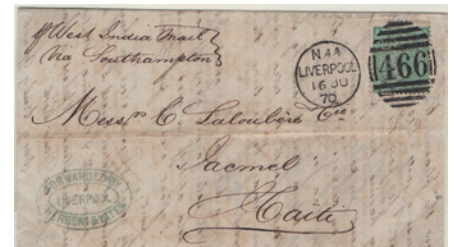 pr West India Mail
Via Southampton
N44
LIVERPOOL
16 JU
70
466
Messrs C. Laloubère & Cie
Jacmel
Haiti
FORWARDED BY
LIVERPOOL
HERBERT & YATES